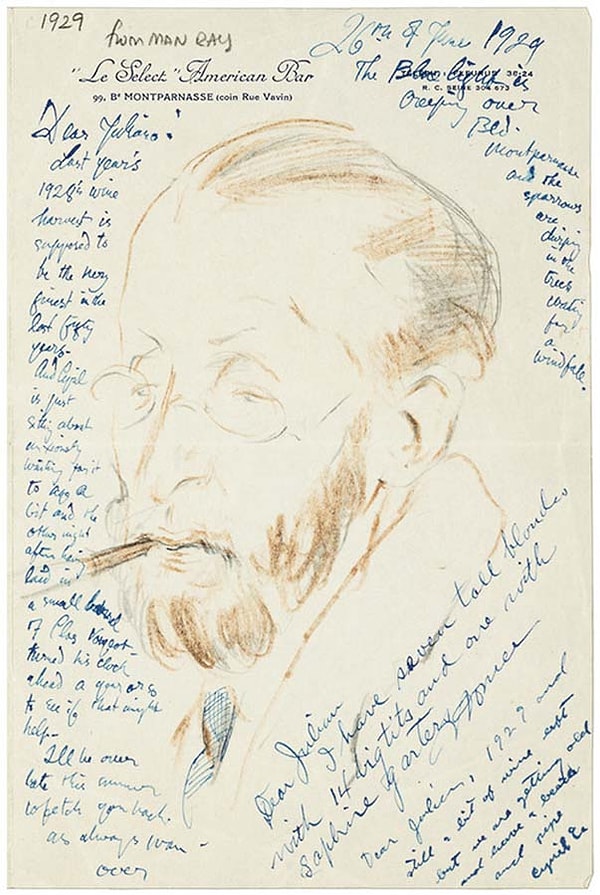 1929
from MAN RAY
26th of June 1929
"Le Select" American Bar
99, Bd MONTPARNASSE (coin Rue Vavin)
R. C. SEINE 304 673
The Blue light is
creeping over
Bld.
Montparnasse
and the
sparrows
are
chirping
in the
trees
waiting
for
a
windfall.
Dear Juliano!
Last year's
1928th wine
harvest is
supposed to
be the very
finest in the
last fifty
years-
And Cyril
is just
sitting about
anxiously
waiting for it
to age a
bit and the
other night
after having
laid in
a small barrel
of Clos Vougeot-
turned his clock
ahead a year or so
to see if that might
help-
I'll be over
late this summer
to fetch you back.
as always
over
Dear Julian
I have seven tall blondes
with 14 big tits and one with
saphire garters
Dear Julien, 1929 and
still a bit of wine left
but we are getting old
and have a beard
and pipe